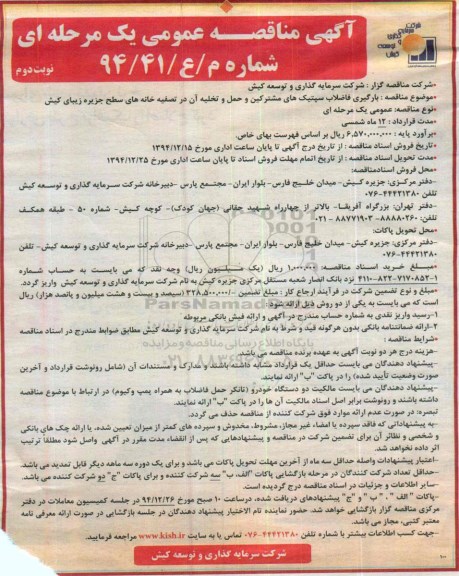 شرکت سرمایه گذاری و توسعه کیش
آگهی مناقصه عمومی یک مرحله ای
شماره م/ع/۹۴/۴۱
نوبت دوم
•شرکت مناقصه گزار : شرکت سرمایه گذاری و توسعه کیش
•موضوع مناقصه : بارگیری فاضلاب سپتیک های مشترکین و حمل و تخلیه آن در تصفیه خانه های سطح جزیره زیبای کیش
•نوع مناقصه: عمومی یک مرحله ای
•مدت قرارداد : ۱۲ ماه شمسی
•برآورد پایه : ۶,۵۷۰,۰۰۰,۰۰۰ ریال بر اساس فهرست بهای خاص.
•تاریخ فروش اسناد مناقصه : از تاریخ درج آگهی تا پایان ساعت اداری مورخ ۱۳۹۴/۱۲/۱۵
•مدت تحویل اسناد مناقصه : از تاریخ اتمام مهلت فروش اسناد تا پایان ساعت اداری مورخ ۱۳۹۴/۱۲/۲۵
•محل فروش اسنادمناقصه:
-دفتر مرکزی: جزیره کیش- میدان خلیج فارس- بلوار ایران- مجتمع پارس -دبیرخانه شرکت سرمایه گذاری و توسعه کیش
تلفن ۰۷۶-۴۴۴۲۱۳۸۰
-دفتر تهران: بزرگراه آفریقا- بالاتر از چهارراه شهید حقانی (جهان کودک)- کوچه کیش- شماره ۵۰ - طبقه همکف
تلفن: ۸۸۸۸۰۲۶۰- ۸۸۷۷۱۹۰۳ - ۰۲۱
•محل تحویل پاکات:
-دفتر مرکزی: جزیره کیش - میدان خلیج فارس- بلوار ایران- مجتمع پارس -دبیرخانه شرکت سرمایه گذاری و توسعه کیش- تلفن
۰۷۶-۴۴۴۲۱۳۸۰
•مبلغ خرید اسناد مناقصه: ۱,۰۰۰,۰۰۰ ریال (یک میلیون ریال) وجه نقد که می بایست به حساب شماره
۴۱۱۰-۸۲۲-۷۱۷۰۸۵۲-۱ نزد بانک انصار شعبه مستقل مرکزی جزیره کیش به نام شرکت سرمایه گذاری و توسعه کیش واریز گردد.
•مبلغ و نوع تضمین شرکت در فرآیند ارجاع کار : مبلغ تضمین ۳۲۸,۵۰۰,۰۰۰/- (سیصد و بیست و هشت میلیون و پانصد هزار) ریال
است که می بایست به یکی از دو روش ذیل ارائه شود:
۱-رسید واریز نقدی به شماره حساب مندرج در آگهی و ارائه فیش بانکی مربوطه
۲-ارائه ضمانتنامه بانکی بدون هرگونه قید و شرط به نام شرکت سرمایه گذاری و توسعه کیش مطابق ضوابط مندرج در اسناد مناقصه
•شرایط مناقصه :
-هزینه درج هر دو نوبت آگهی به عهده برنده مناقصه می باشد.
-پیشنهاد دهندگان می بایست حداقل یک قرارداد مشابه داشته باشند و مدارک و مستندات آن (شامل رونوشت قرارداد و آخرین
صورت وضعیت تأیید شده) را در پاکت "ب" ارائه نمایند.
-پیشنهاد دهندگان می بایست مالکیت دو دستگاه خودرو (تانکر حمل فاضلاب به همراه پمپ وکیوم) در ارتباط با موضوع مناقصه
داشته باشند و رونوشت برابر اصل اسناد مالکیت آن ها را در پاکت "ب" ارائه نمایند.
تبصره: در صورت عدم ارائه موارد فوق شرکت کننده از مناقصه حذف می گردد.
-به پیشنهاداتی که فاقد سپرده یا امضاء غیر مجاز، مشروط، مخدوش و سپرده های کمتر از میزان تعیین شده، یا ارائه چک های بانکی
و شخصی و نظائر آن برای تضمین شرکت در مناقصه و پیشنهادهایی که پس از انقضاء مدت مقرر در آگهی واصل شود مطلقا ترتیب
اثر داده نخواهد شد.
-اعتبار پیشنهادات واصله حداقل سه ماه از آخرین مهلت تحویل پاکات می باشد و برای یک دوره سه ماهه دیگر قابل تمدید می باشد.
-حداقل تعداد شرکت کنندگان در مرحله بازگشایی پاکات "الف، ب" سه شرکت کننده و برای پاکات "ج" دو شرکت کننده می باشد.
-سایر اطلاعات و جزئیات در اسناد مناقصه درج گردیده است.
-پاکات " الف " ، " ب " و " ج" پیشنهادهای دریافت شده، درساعت ۱۰ صبح مورخ ۹۴/۱۲/۲۶ در جلسه کمیسیون معاملات در دفتر
مرکزی مناقصه گزار بازگشایی خواهد شد. حضور نماینده تام الاختیار پیشنهاد دهندگان در جلسه بازگشایی در صورت ارائه معرفی نامه
معتبر کتبی، مجاز می باشد.
-جهت کسب اطلاعات بیشتر با شماره تلفن ۰۷۶-۴۴۴۲۱۳۸۰ تماس یا به سایت www.kish.ir مراجعه فرمایید.
شرکت سرمایه گذاری و توسعه کیش